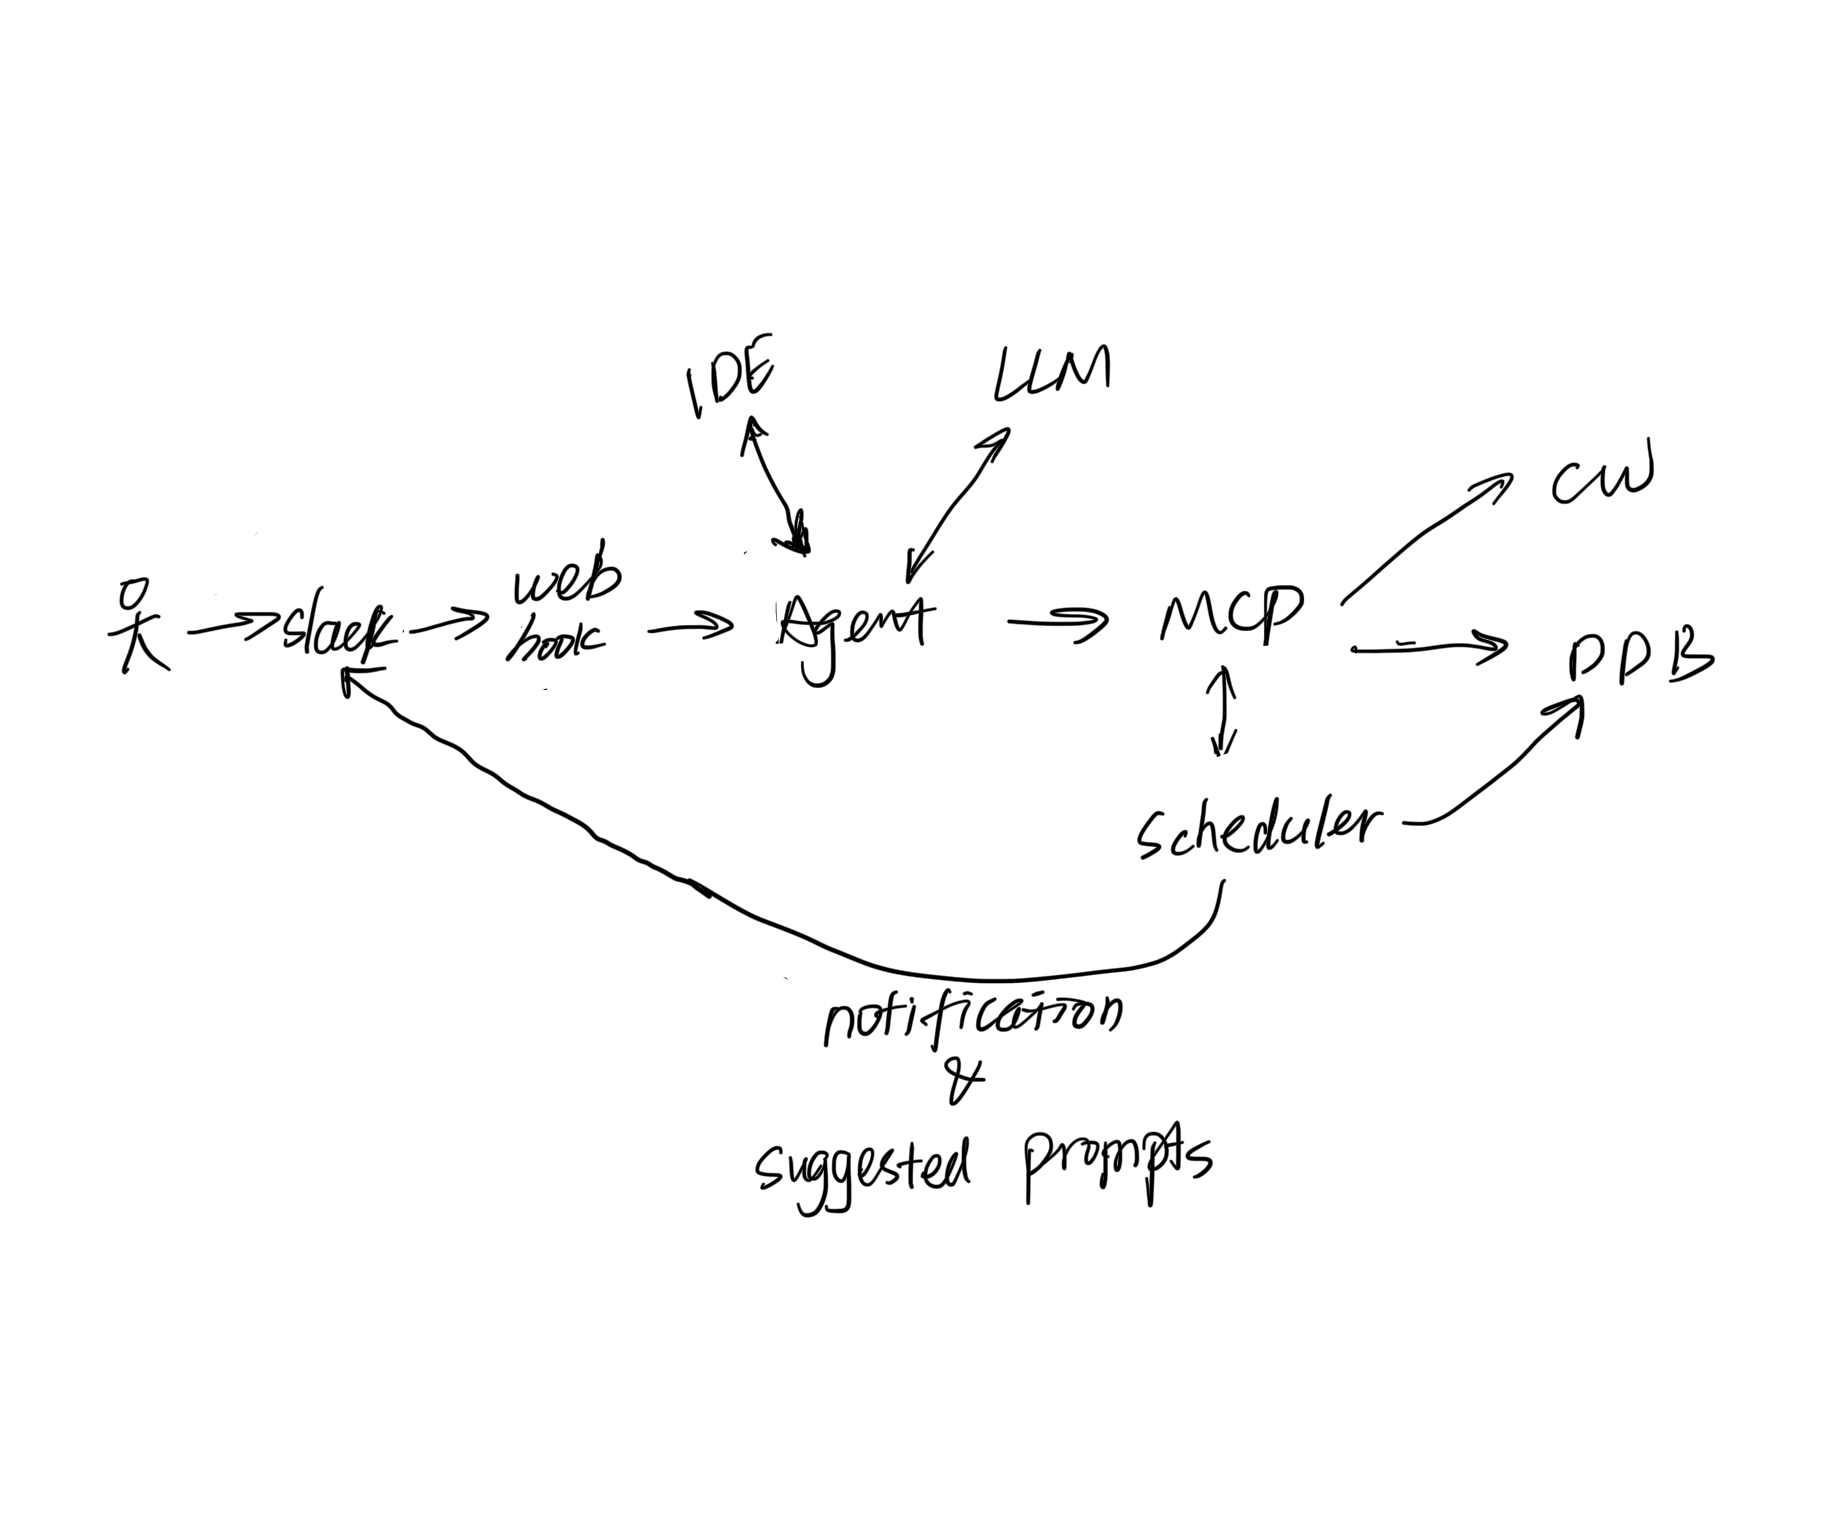 IDE
LLM
CW
slack
web
hook
Agent
MCP
DDB
scheduler
notification
&
suggested prompts